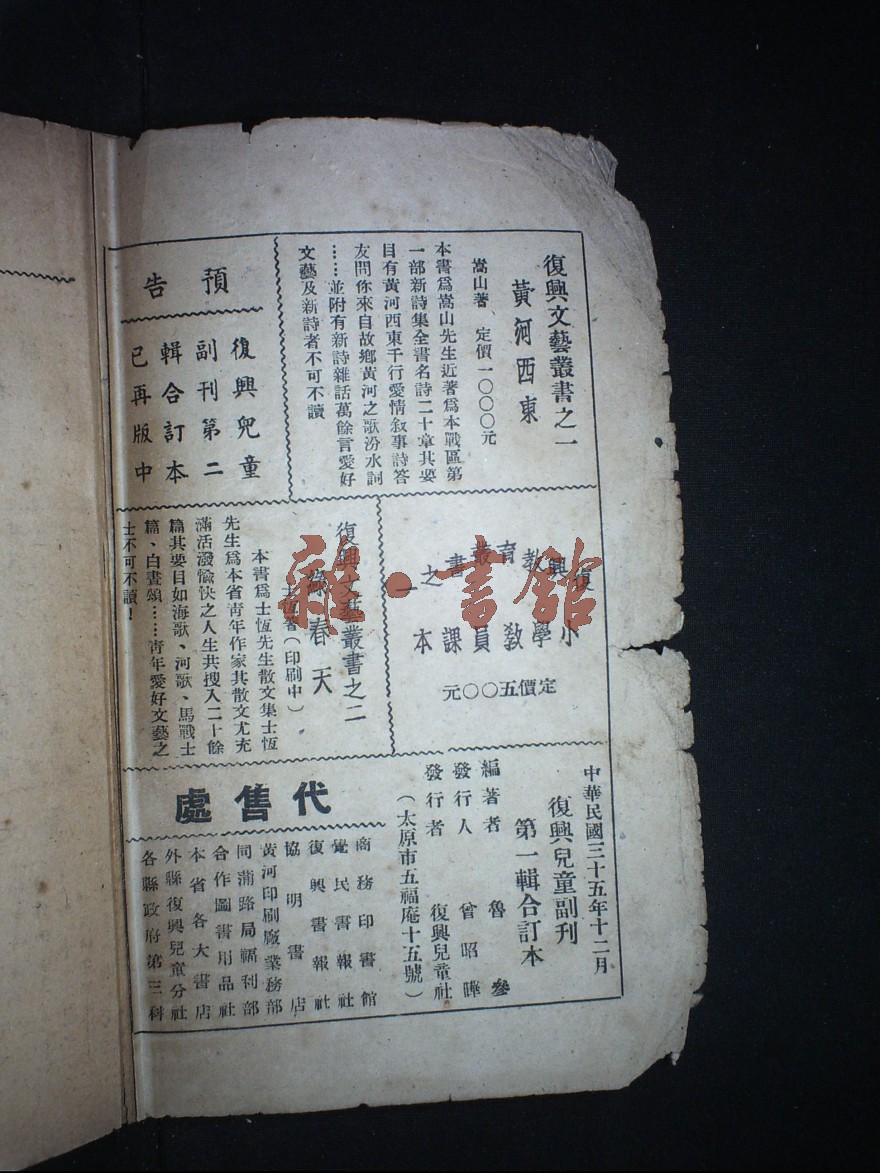 復興文藝叢書之一
黃河西東
嵩山著、定價一〇〇〇元
本書爲嵩山先生近著爲本戰區第
一部新詩集全書名詩二十章其要
目有黃河西東千行愛情叙事詩答
友問你來自故鄉黃河之歌汾水詞
……並附有新詩雜話萬餘言愛好
文藝及新詩者不可不讀
預告
復興兒童
副刊第二
輯合訂本
已再版中
復興教育叢書
之一
小學敎員課本
定價五〇〇元
復興文藝叢書之二
綠春天
士恆著(印刷中)
本書爲士恆先生散文集士恆
先生爲本省靑年作家其散文尤充
滿活潑愉快之人生共搜入二十餘
篇其要目如海歌、河歌、馬戰士
篇、白晝頌……靑年愛好文藝之
士不可不讀!
中華民國三十五年十二月
復興兒童副刊
第一輯合訂本
編著者 魯參
發行人 曾昭曄
發行者 復興兒童社
(太原市五福庵十五號)
代售處
商務印書館
覺民書報社
復興書報社
協明書店
黃河印刷廠業務部
同蒲路局福利部
合作圖書用品社
本省各大書店
外縣復興兒童分社
各縣政府第三科
雜·書館